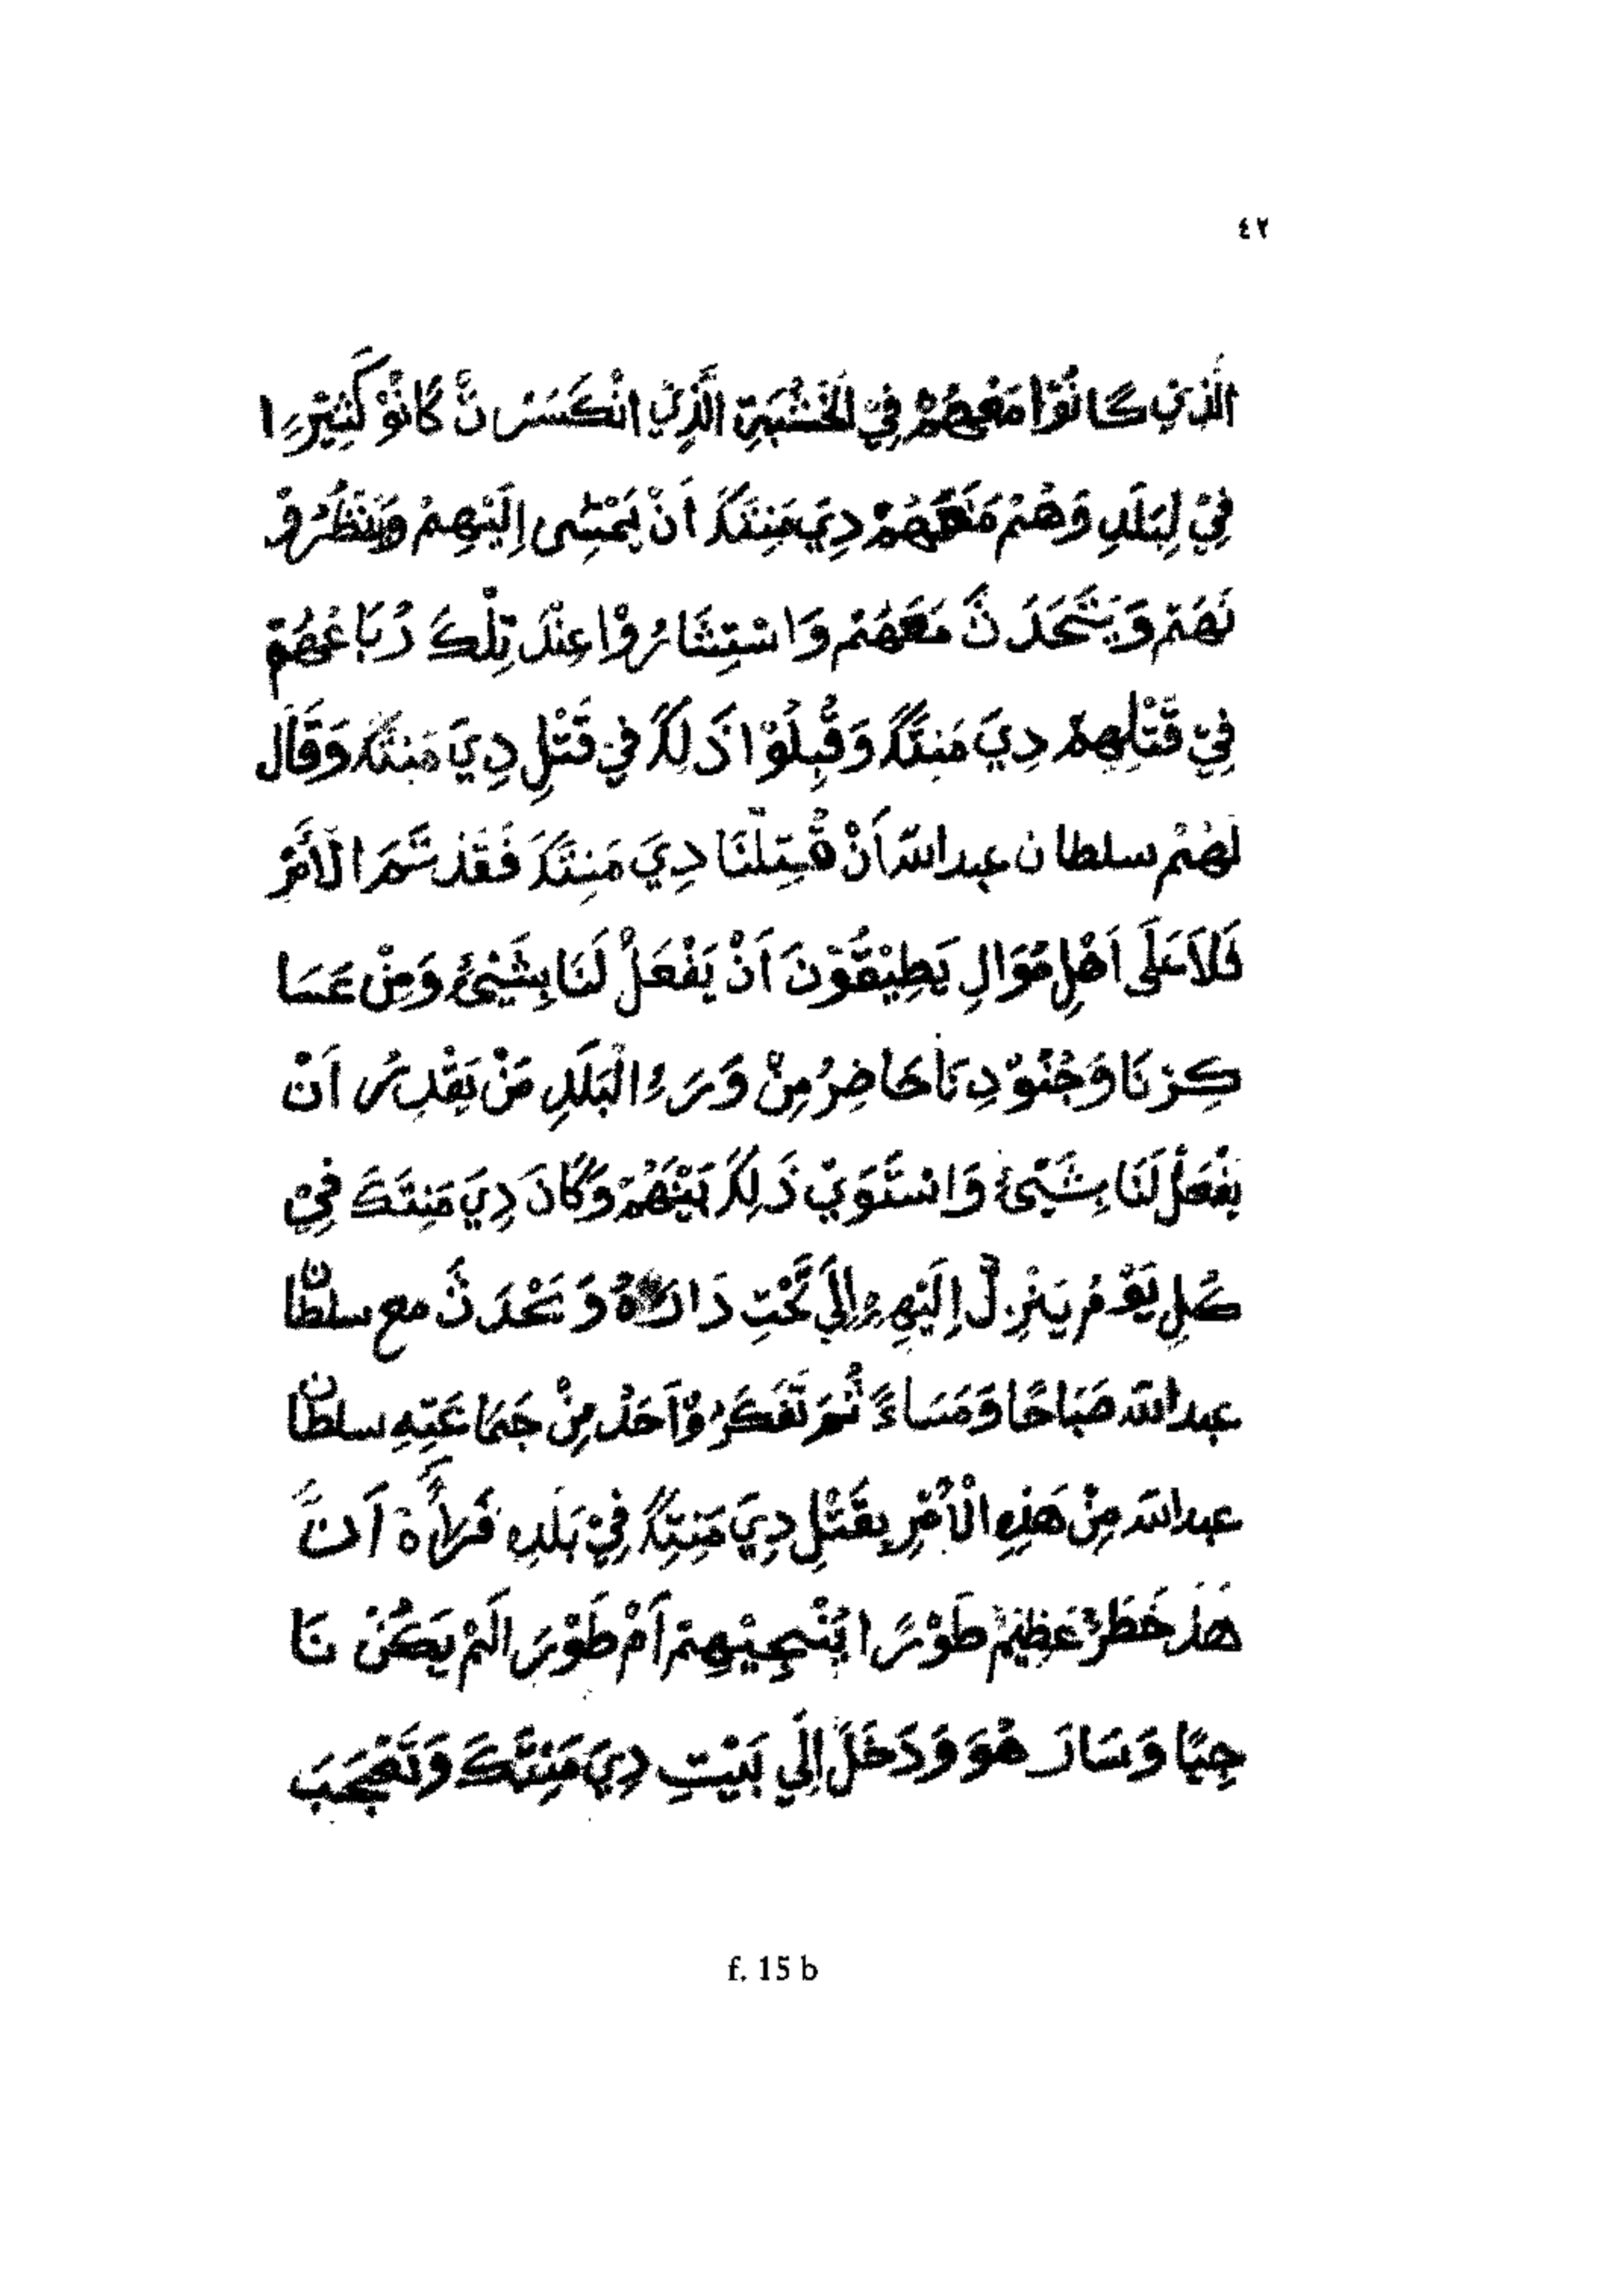 ٤٢
الَّذِيْنَ كَانُوْا مَعَهُمْ فِيْ لْخَشْبَةِ الَّذِيْ انْكَسَرَنَّ كَانُوْ كَثِيْرِا
فِيْ لِبَلَدِ وَهُمْ مَعَهُمْ دِيَ مَنِتَكَ اَنْ يَمْشِى اِلَيْهِمْ وَيَنْظُرُوْ
نَهُمْ وَيَتَّحَدَنَّ مَعَهُمْ وَاسْتِشَارُوْا عِنْدَ تِلْكَ رُبَاعُهُمْ
فِيْ قَتْلِهِمْ دِيَ مَنِتَّكَ وَقَّبِلُوْا ذَلِكَ فِي قَتْلِ دِيَ مَنِتَكَ وَقَالَ
لَهُمْ سلطان عبدالله اَنْ قُّتِلْنَا دِيَ مَنِتَّكَ فَقَدْ تَّمَرَا لْاَمْرُ
فَلاَ عَلَى اَهْلِ مُوَالِ يَطِيْقُّوْنَ اَنْ يَفْعَلْ لَنَا بِشَيْئٍ وَمِنْ عَسَا
كِرْنَا وَجُنُوْدِنَا حَاضِرُ مِنْ وَرَءِ الْبَلَدِ مَنْ يَقْدِرُ اَنْ
يَفْعَلْ لَنَا بِشَيْئٍ وَاسْتَوَيْ ذَلِكَ بَيْنَهُمْ وَكَانَ دِيَ مَنِتَكَ فِيْ
كُلِ يَوْمُ يَنْزِلُ اِلَيْهِمْ اِلَي تَّحْتِ دَارُهُ وَ تَحْدَثَ مع سلطان
عبدالله صَبَاحًا وَمَسَاءً ثُمَّ تَفَكَرُ وْاَحَدْ مِنْ جَمَاعَتِهِ سلطان
عبدالله مِنْ هَذِهِ الْاَمْرِ بِقَتْلِ دِيَ مَنِتِكَ فِيْ بَلَدِ فَرَاَةَ اَنَّ
هَذَ خَطَرْ عَظِيْمْ طَوْرًا يُنْجِيْهِمْ اَمْ طَوْرَا لَمْ يَكُنْ نَا
جِيًا وَسَارَ هُوَ وَدَخَلَ اِلَي بَيْتِ دِيَ مَنِتَّكَ وَتَعْجَبَ
f. 15 b